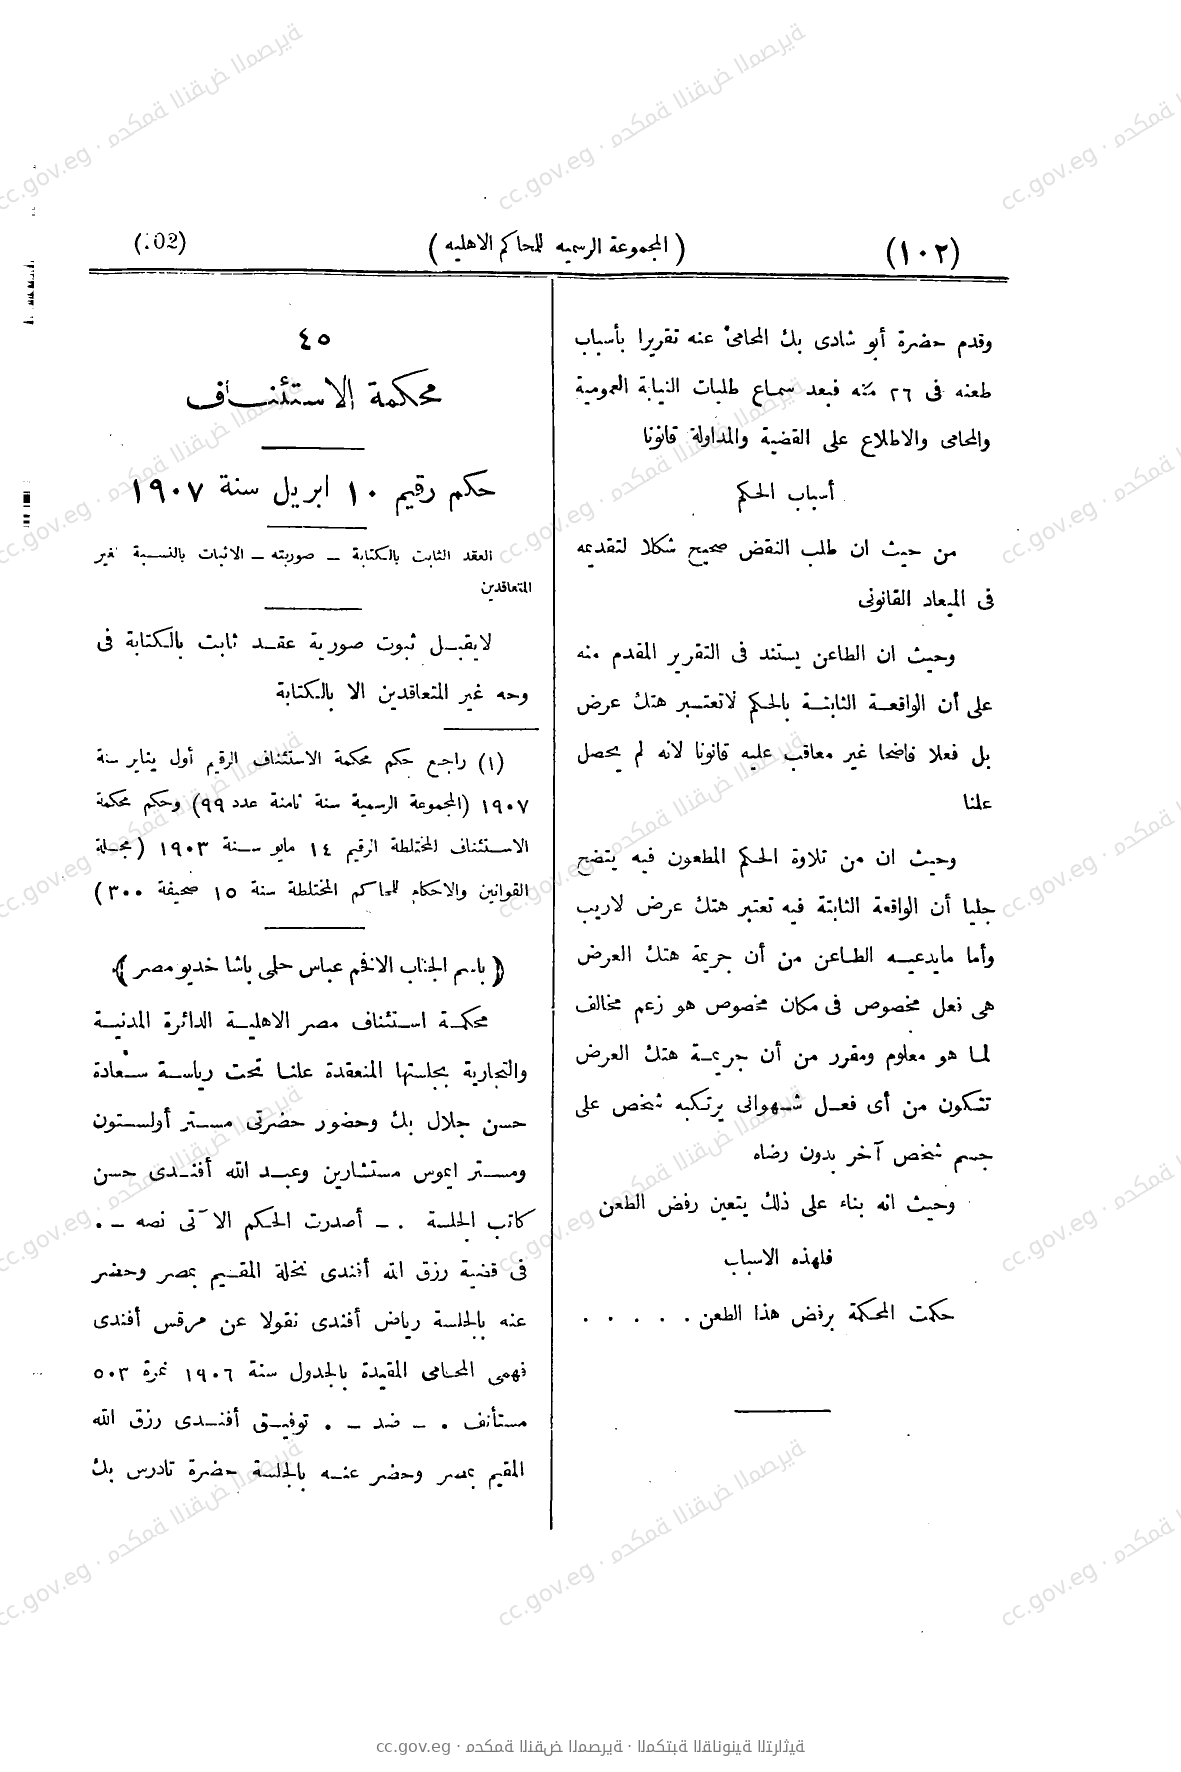 (١٠٢)
( المجموعة الرسميه للمحاكم الاهليه )
وقدم حضرة أبو شادى بك المحامى عنه تقريرا بأسباب
طعنه فى ٢٦ منه فبعد سماع طلبات النيابة العمومية
والمحامى والاطلاع على القضية والمداولة قانونا
أسباب الحكم
من حيث ان طلب النقض صحيح شكلا لتقديمه
فى الميعاد القانونى
وحيث ان الطاعن يستند فى التقرير المقدم منه
على أن الواقعة الثابتة بالحكم لاتعتبر هتك عرض
بل فعلا فاضحا غير معاقب عليه قانونا لانه لم يحصل
علنا
وحيث ان من تلاوة الحكم المطعون فيه يتضح
جليا أن الواقعة الثابتة فيه تعتبر هتك عرض لاريب
وأما مايدعيه الطاعن من أن جريمة هتك العرض
هى فعل مخصوص فى مكان مخصوص هو زعم مخالف
لما هو معلوم ومقرر من أن جريمة هتك العرض
تتكون من أى فعل شهوانى يرتكبه شخص على
جسم شخص آخر بدون رضاه
وحيث انه بناء على ذلك يتعين رفض الطعن
فلهذه الاسباب
حكمت المحكمة برفض هذا الطعن . . . . .
٤٥
محكمة الاستئناف
حكم رقيم ١٠ ابريل سنة ١٩٠٧
العقد الثابت بالكتابة – صوريته – الاثبات بالنسبة لغير
المتعاقدين
لايقبل ثبوت صورية عقد ثابت بالكتابة فى
وجه غير المتعاقدين الا بالكتابة
(١) راجع حكم محكمة الاستئناف الرقيم أول يناير سنة
١٩٠٧ (المجموعة الرسمية سنة ثامنة عدد ٩٩) وحكم محكمة
الاستئناف المختلطة الرقيم ١٤ مايو سنة ١٩٠٣ (مجلة
القوانين والاحكام للمحاكم المختلطة سنة ١٥ صحيفة ٣٠٠)
﴿ باسم الجناب الافخم عباس حلمى باشا خديو مصر ﴾
محكمة استئناف مصر الاهلية الدائرة المدنية
والتجارية بجلستها المنعقدة علنا تحت رياسة سعادة
حسن جلال بك وحضور حضرتى مستر أولستون
ومستر ايموس مستشارين وعبد الله أفندى حسن
كاتب الجلسة . – أصدرت الحكم الآتى نصه – .
فى قضية رزق الله أفندى نخلة المقيم بمصر وحضر
عنه بالجلسة رياض أفندى نقولا عن مرقس أفندى
فهمى المحامى المقيدة بالجدول سنة ١٩٠٦ نمرة ٥٠٣
مستأنف . – ضد – . توفيق أفندى رزق الله
المقيم بمصر وحضر عنه بالجلسة حضرة تادرس بك
cc.gov.eg · محكمة النقض المصرية · المكتبة القانونية التراثية